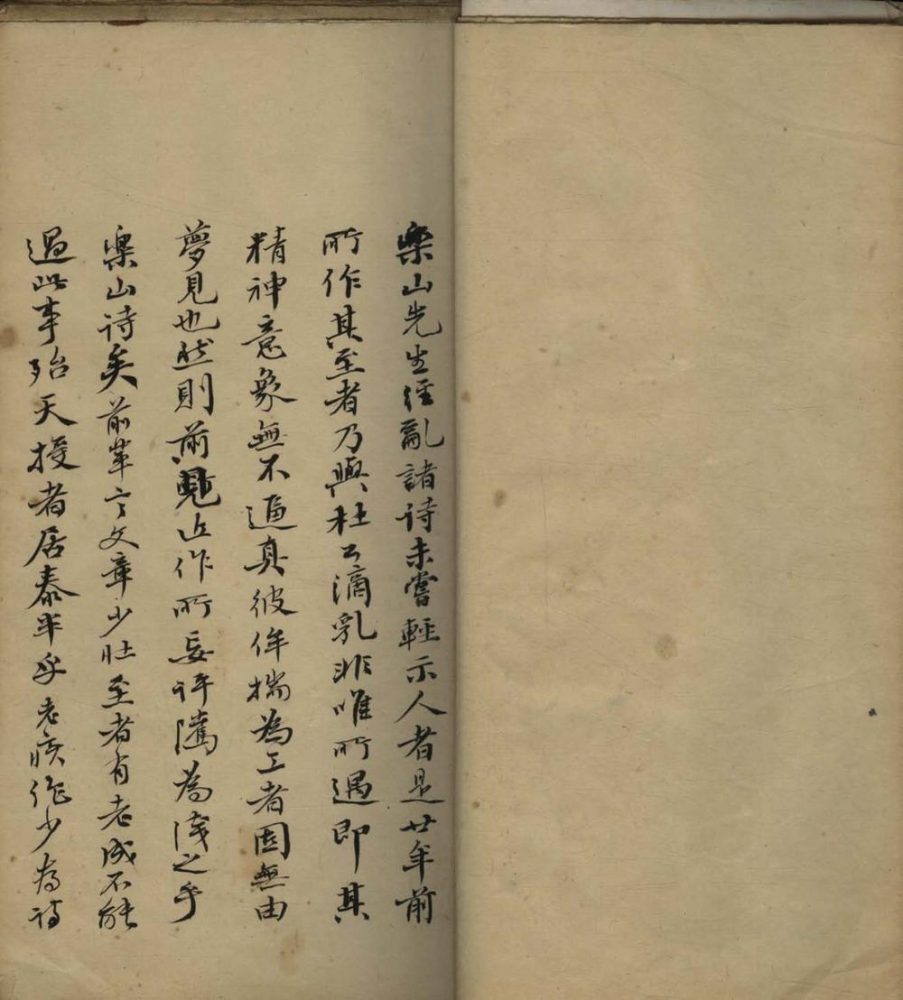 樂山先生經亂諸詩未嘗輕示人者是廿年前
所作其至者乃與杜公滴乳非唯所遇即其
精神意象無不逼真彼侔揣為工者固無由
夢見也然則前見近作所妄評騭為淺之乎
樂山詩矣前輩言文章少壯至者有老成不能
過此事殆天授者居泰半乎老疾作少為詩